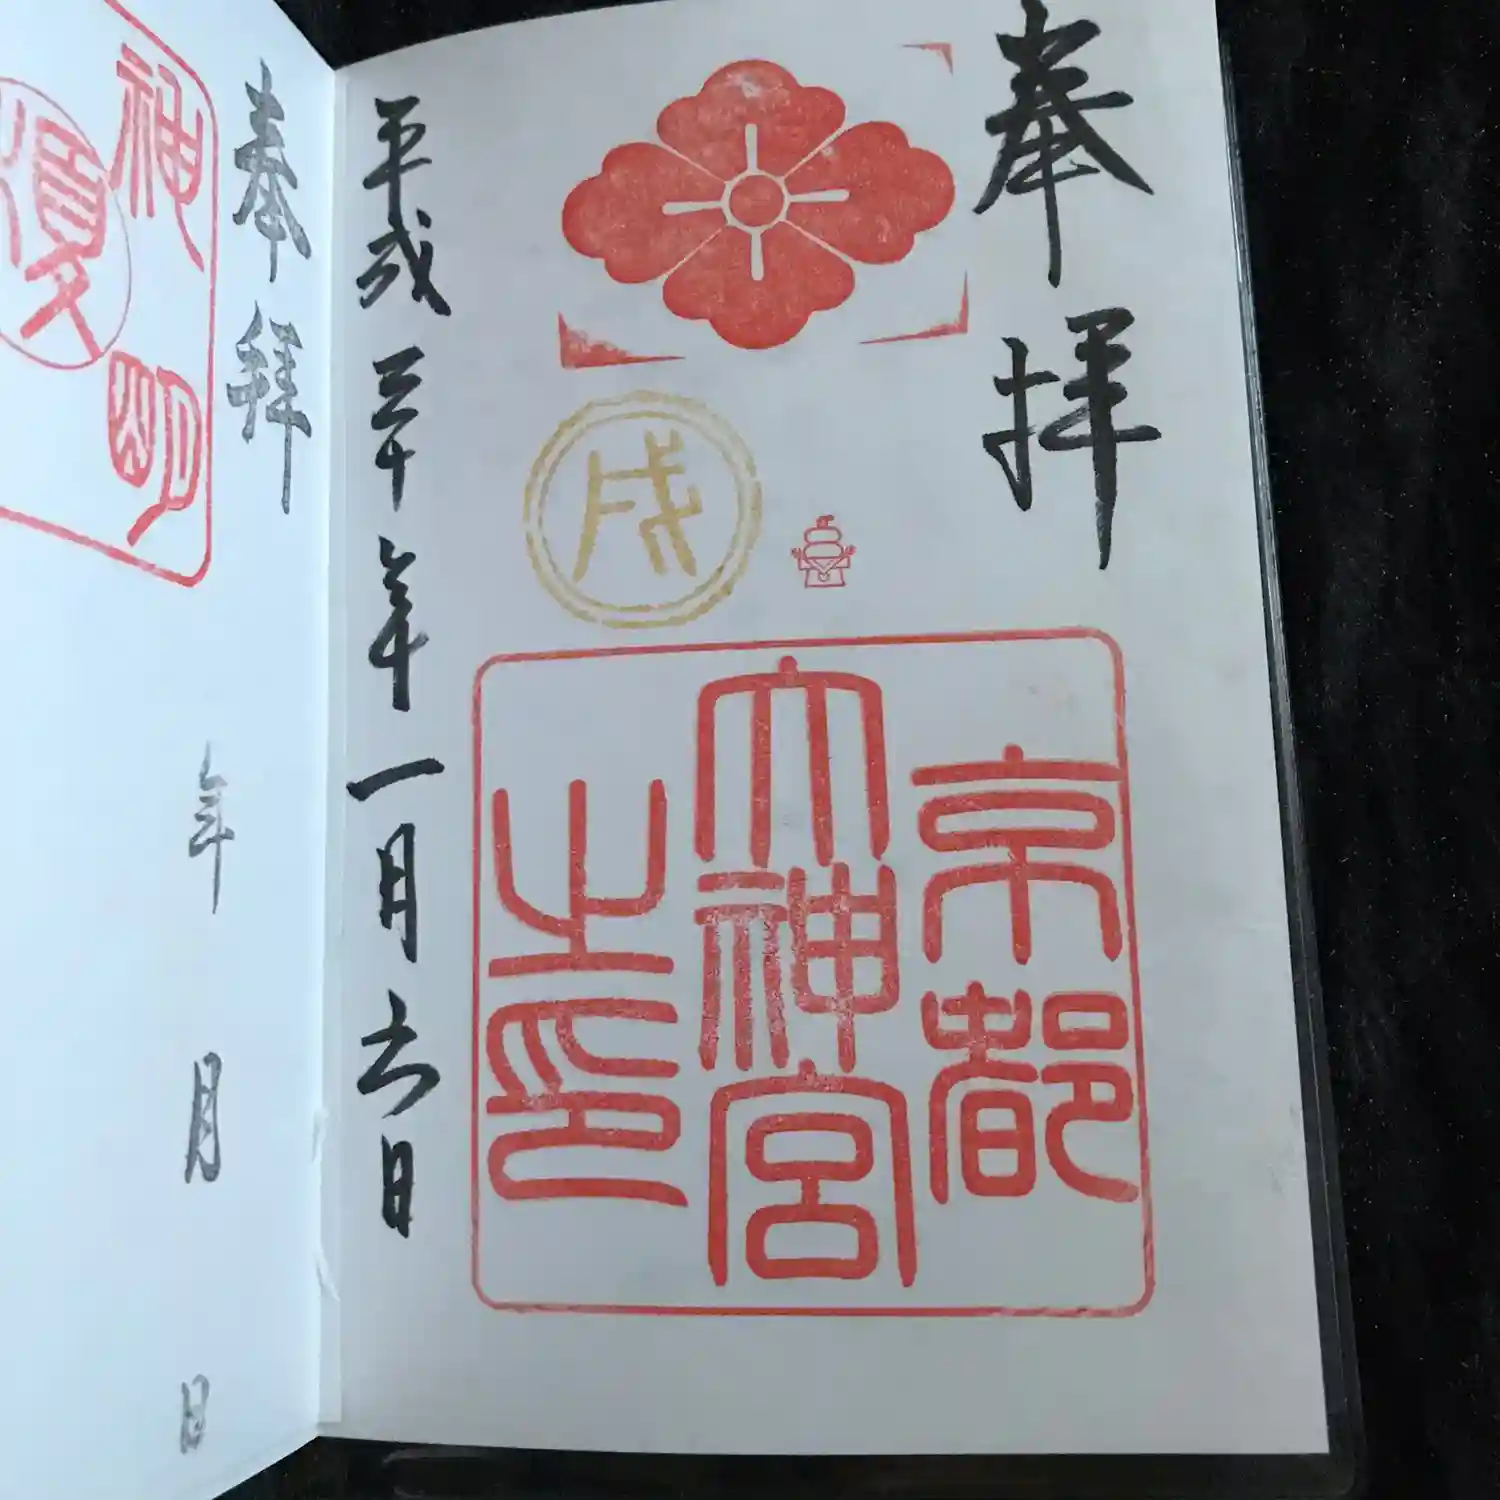 奉拝
戌
京都
大神宮
之印
平成三十年一月六日
奉拝
神明
年 月 日